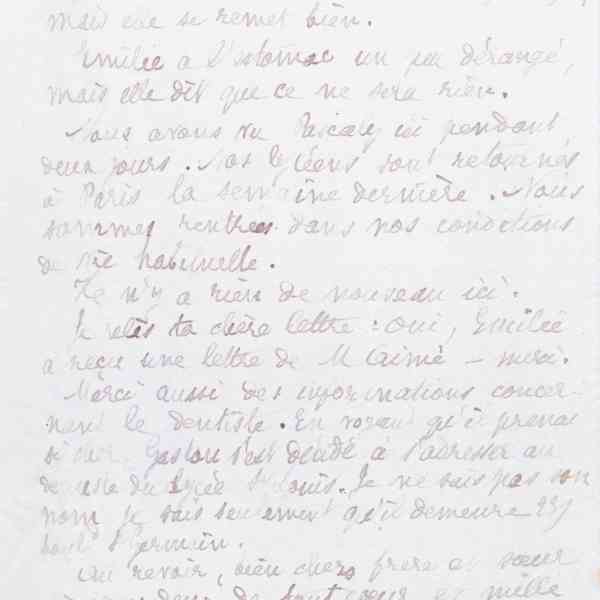 mais elle se remet bien.
Emilie a l'estomac un peu dérangé,
mais elle dit que ce ne sera rien.
Nous avons vu Pascaly ici pendant
deux jours. Nos lycéens sont retournés
à Paris la semaine dernière. Nous
sommes rentrées dans nos conditions
de vie habituelle.
Il n'y a rien de nouveau ici.
Je relis ta chère lettre : oui, Emilie
a reçu une lettre de M Aimé – merci.
Merci aussi des informations concer-
nant le dentiste. En voyant qu'il prenait
si cher, Gaston s'est décidé à s'adresser au
dentiste du lycée St Louis. Je ne sais pas son
nom, je sais seulement qu'il demeure
boul. St Germain.
Au revoir, bien chers frère et sœur
de tout cœur et mille